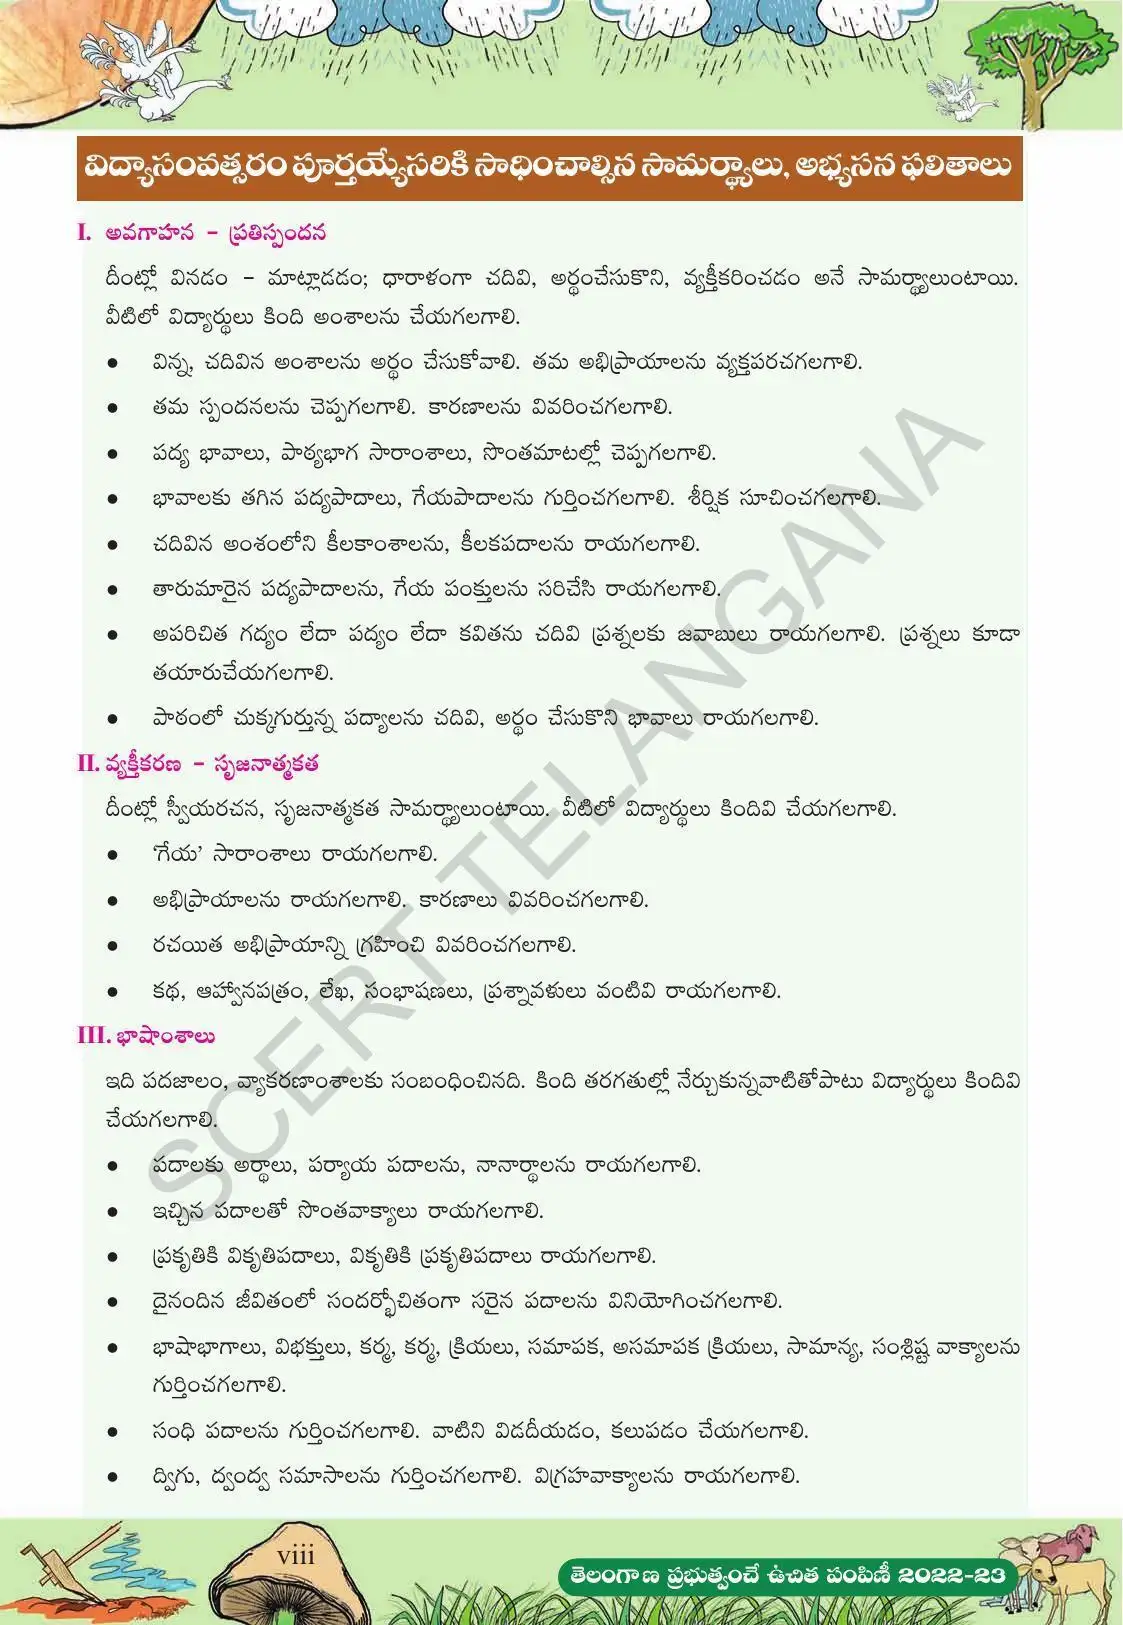 విద్యాసంవత్సరం పూర్తయ్యేసరికి సాధించాల్సిన సామర్థ్యాలు, అభ్యసన ఫలితాలు
I. అవగాహన - ప్రతిస్పందన
దీంట్లో వినడం - మాట్లాడడం; ధారాళంగా చదివి, అర్థంచేసుకొని, వ్యక్తీకరించడం అనే సామర్థ్యాలుంటాయి.
వీటిలో విద్యార్థులు కింది అంశాలను చేయగలగాలి.
● విన్న, చదివిన అంశాలను అర్థం చేసుకోవాలి. తమ అభిప్రాయాలను వ్యక్తపరచగలగాలి.
● తమ స్పందనలను చెప్పగలగాలి. కారణాలను వివరించగలగాలి.
● పద్య భావాలు, పాఠ్యభాగ సారాంశాలు, సొంతమాటల్లో చెప్పగలగాలి.
● భావాలకు తగిన పద్యపాదాలు, గేయపాదాలను గుర్తించగలగాలి. శీర్షిక సూచించగలగాలి.
● చదివిన అంశంలోని కీలకాంశాలను, కీలకపదాలను రాయగలగాలి.
● తారుమారైన పద్యపాదాలను, గేయ పంక్తులను సరిచేసి రాయగలగాలి.
● అపరిచిత గద్యం లేదా పద్యం లేదా కవితను చదివి ప్రశ్నలకు జవాబులు రాయగలగాలి. ప్రశ్నలు కూడా
తయారుచేయగలగాలి.
● పాఠంలో చుక్కగుర్తున్న పద్యాలను చదివి, అర్థం చేసుకొని భావాలు రాయగలగాలి.
II. వ్యక్తీకరణ - సృజనాత్మకత
దీంట్లో స్వీయరచన, సృజనాత్మకత సామర్థ్యాలుంటాయి. వీటిలో విద్యార్థులు కిందివి చేయగలగాలి.
● ‘గేయ’ సారాంశాలు రాయగలగాలి.
● అభిప్రాయాలను రాయగలగాలి. కారణాలు వివరించగలగాలి.
● రచయిత అభిప్రాయాన్ని గ్రహించి వివరించగలగాలి.
● కథ, ఆహ్వానపత్రం, లేఖ, సంభాషణలు, ప్రశ్నావళులు వంటివి రాయగలగాలి.
III. భాషాంశాలు
ఇది పదజాలం, వ్యాకరణాంశాలకు సంబంధించినది. కింది తరగతుల్లో నేర్చుకున్నవాటితోపాటు విద్యార్థులు కిందివి
చేయగలగాలి.
● పదాలకు అర్థాలు, పర్యాయ పదాలను, నానార్థాలను రాయగలగాలి.
● ఇచ్చిన పదాలతో సొంతవాక్యాలు రాయగలగాలి.
● ప్రకృతికి వికృతిపదాలు, వికృతికి ప్రకృతిపదాలు రాయగలగాలి.
● దైనందిన జీవితంలో సందర్భోచితంగా సరైన పదాలను వినియోగించగలగాలి.
● భాషాభాగాలు, విభక్తులు, కర్మ, కర్మ, క్రియలు, సమాపక, అసమాపక క్రియలు, సామాన్య, సంశ్లిష్ట వాక్యాలను
గుర్తించగలగాలి.
● సంధి పదాలను గుర్తించగలగాలి. వాటిని విడదీయడం, కలుపడం చేయగలగాలి.
● ద్విగు, ద్వంద్వ సమాసాలను గుర్తించగలగాలి. విగ్రహవాక్యాలను రాయగలగాలి.
SCERT TELANGANA
viii
తెలంగాణ ప్రభుత్వంచే ఉచిత పంపిణీ 2022-23